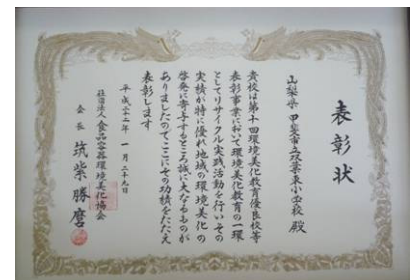 表彰状
山梨県 甲斐市立双葉東小学校 殿
貴校は第十回環境美化教育優良校等
表彰事業において環境美化教育の一環
としてリサイクル実践活動を行いその
実績が特に優れ地域の環境美化の
啓発に寄与するところ誠に大なるものが
ありましたのでここにその功績をたたえ
表彰します
平成二十二年 一月二十九日
社団法人 食品容器環境美化協会
会長 筑紫勝麿